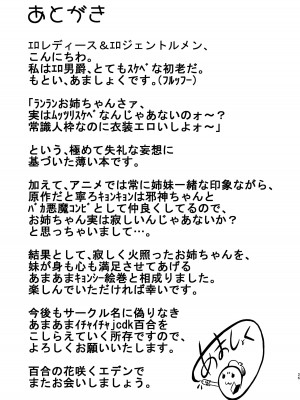 あとがき
ｴﾛレディース＆ｴﾛジェントルメン、
こんにちわ。
私はｴﾛ男爵、とてもｽｹﾍﾞな初老だ。
もとい、あましょくです。(ﾌﾙｯﾌｰ)
「ﾗﾝﾗﾝお姉ちゃんさァ、
実はﾑｯﾂﾘｽｹﾍﾞなんじゃあないのォ～？
常識人枠なのに衣装エロいしよォ～」
という、極めて失礼な妄想に
基づいた薄い本です。
加えて、アニメでは常に姉妹一緒な印象ながら、
原作だと寧ろｷｮﾝｷｮﾝは邪神ちゃんと
ﾊﾞｶ悪魔ｺﾝﾋﾞとして仲良くしてるので、
お姉ちゃん実は寂しいんじゃあないか？
と思っちゃいまして…。
結果として、寂しく火照ったお姉ちゃんを、
妹が身も心も満足させてあげる
あまあまｷｮﾝｼｰ絵巻と相成りました。
楽しんでいただければ幸いです。
今後もサークル名に偽りなき
あまあまｲﾁｬｲﾁｬjcdk百合を
こしらえていく所存ですので、
よろしくお願いいたします。
百合の花咲くエデンで
またお会いしましょう。
あましょく